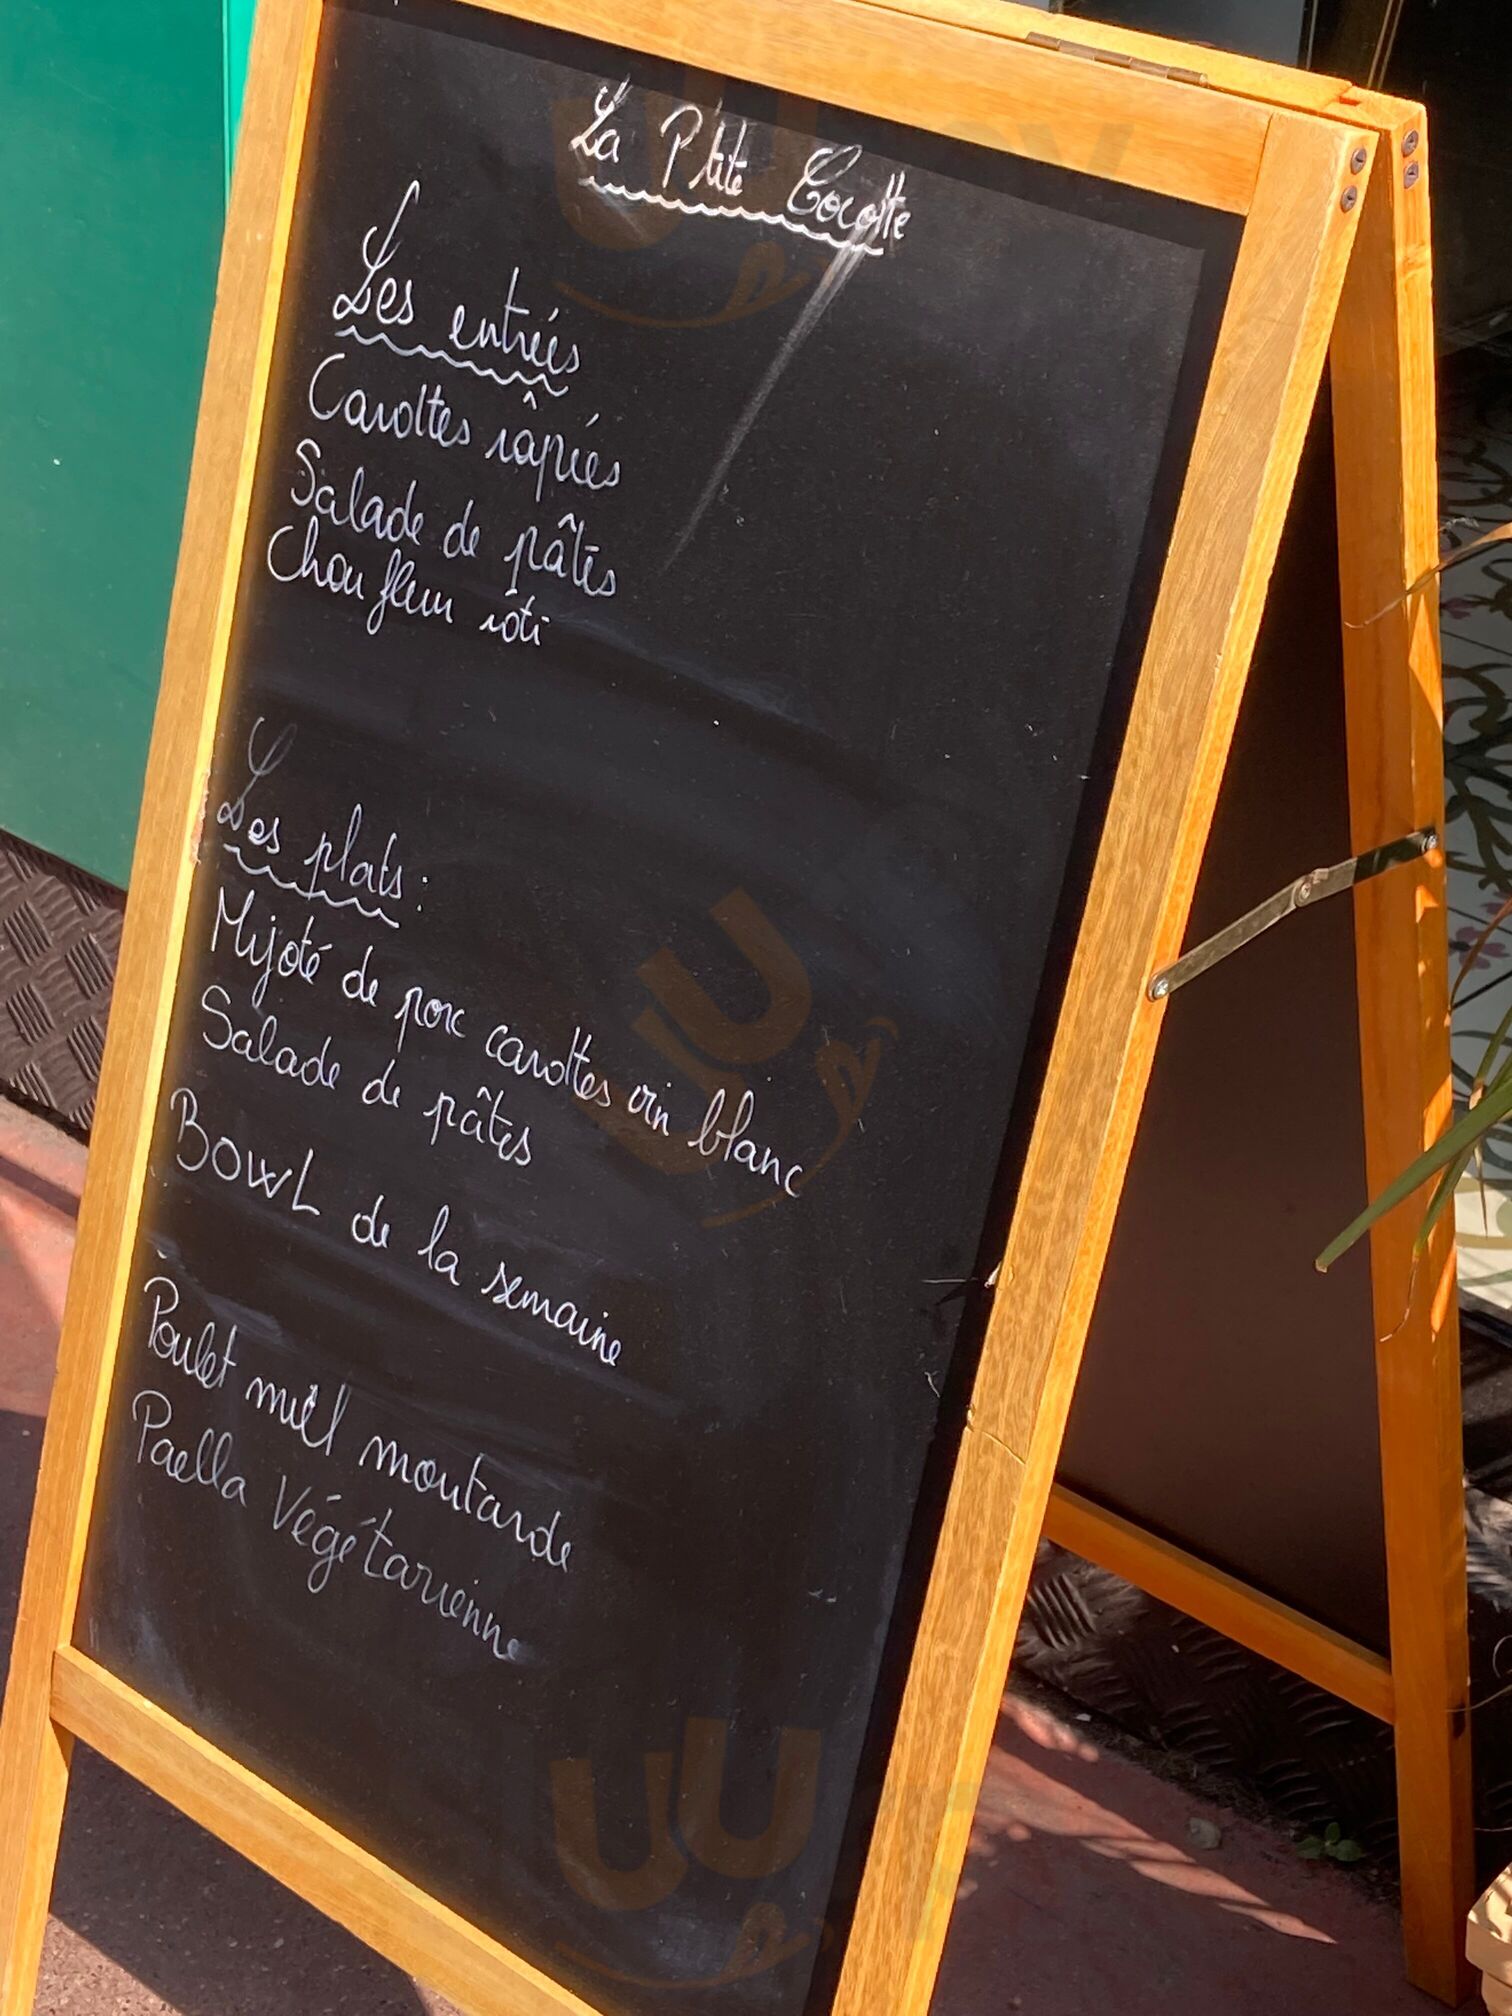 La P'tite Cocotte
Les entrées
Carottes râpées
Salade de pâtes
Chou fleur rôti
Les plats :
Mijoté de porc carottes vin blanc
Salade de pâtes
BOWL de la semaine
Poulet miel moutarde
Paella Végétarienne